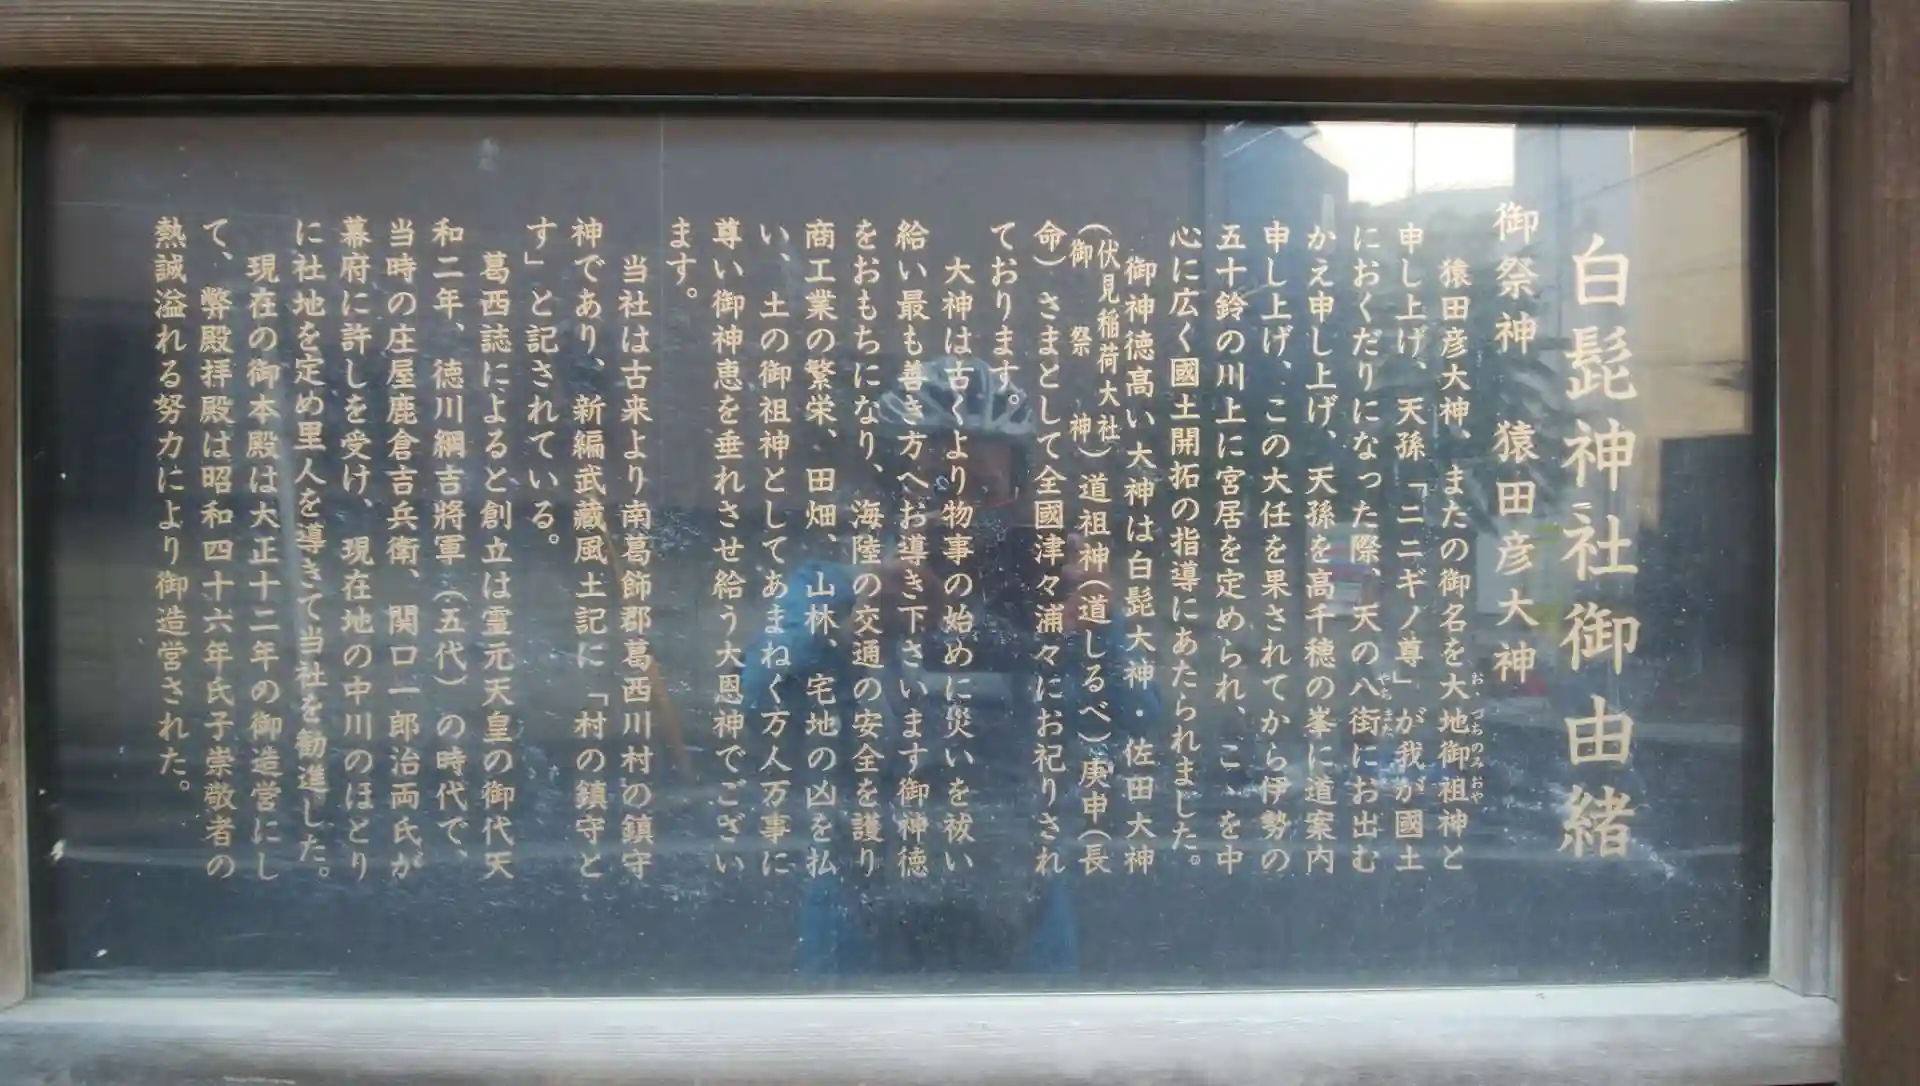 白髭神社御由緒
御祭神　猿田彦大神
猿田彦大神、またの御名を大地御祖神と
申し上げ、天孫「ニニギノ尊」が我が國土
におくだりになった際、天の八街にお出む
かえ申し上げ、天孫を高千穂の峯に道案内
申し上げ、この大任を果されてから伊勢の
五十鈴の川上に宮居を定められ、こゝを中
心に広く國土開拓の指導にあたられました。
御神徳高い大神は白髭大神・佐田大神
（伏見稲荷大社御祭神）道祖神（道しるべ）庚申（長
命）さまとして全國津々浦々にお祀りされ
ております。
大神は古くより物事の始めに災いを祓い
給い最も善き方へお導き下さいます御神徳
をおもちになり、海陸の交通の安全を護り
商工業の繁栄、田畑、山林、宅地の凶を払
い、土の御祖神としてあまねく万人万事に
尊い御神恵を垂れさせ給う大恩神でござい
ます。
当社は古来より南葛飾郡葛西川村の鎮守
神であり、新編武蔵風土記に「村の鎮守と
す」と記されている。
葛西誌によると創立は霊元天皇の御代天
和二年、徳川綱吉將軍（五代）の時代で、
当時の庄屋鹿倉吉兵衛、関口一郎治両氏が
幕府に許しを受け、現在地の中川のほとり
に社地を定め里人を導きて当社を勧進した。
現在の御本殿は大正十二年の御造営にし
て、弊殿拝殿は昭和四十六年氏子崇敬者の
熱誠溢れる努力により御造営された。